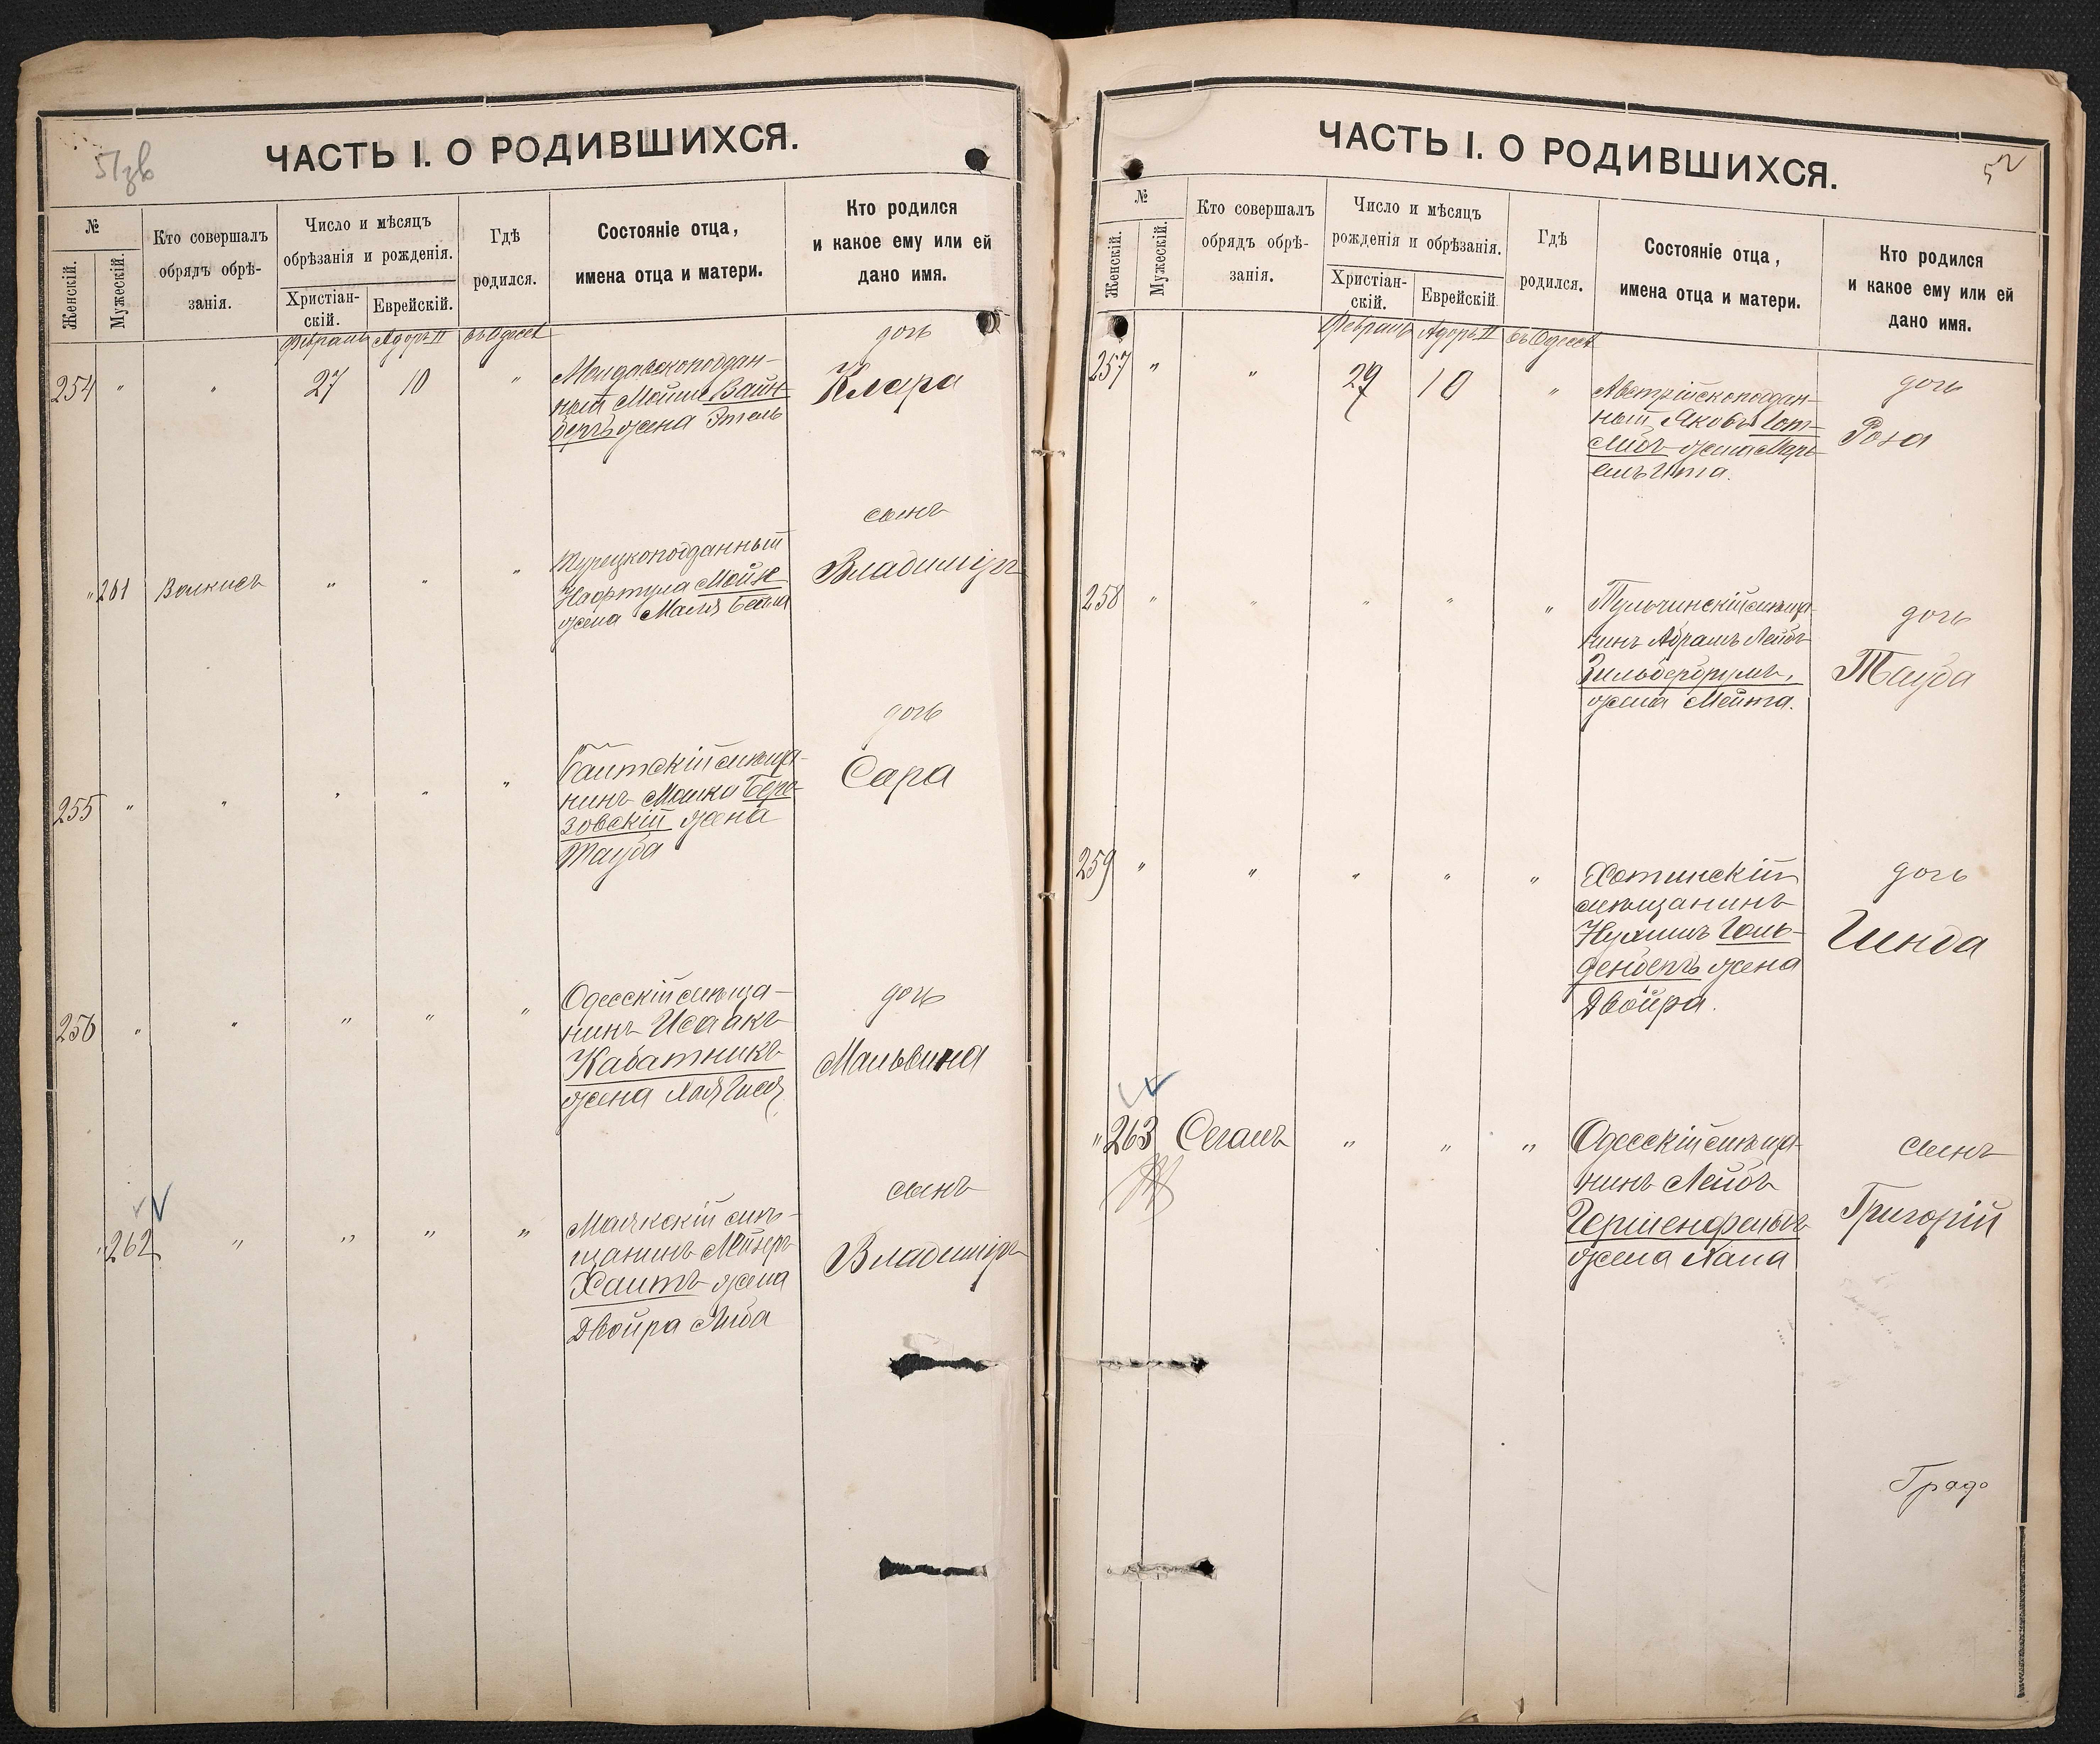 51зв
ЧАСТЬ I. О РОДИВШИХСЯ.
№
Женскій.
Мужескій.
Кто совершалъ
обрядъ обрѣ-
занія.
Число и мѣсяцъ
обрѣзанія и рожденія.
Христіан-
скій.
Еврейскій.
Гдѣ
родился.
Состояніе отца,
имена отца и матери.
Кто родился
и какое ему или ей
дано имя.
Февраль Адоръ II въ Одессѣ
254 " " 27 10 "
Молдавскоподдан-
ный Мойше Вайн-
бергъ жена Этель
дочь
Клара
" 261 Волкисъ " " "
Турецкоподданный
Нафтула Мойзе
жена Маля Бейла
сынъ
Владиміръ
255 " " " " "
Балтскій мѣща-
нинъ Мошко Бере-
зовскій жена
Тауба
дочь
Сара
256 " " " " "
Одесскій мѣща-
нинъ Исаакъ
Кабатникъ
жена
дочь
Мальвина
" 262 " " " "
Маякскій мѣ-
щанинъ Мейеръ
Хаитъ жена
Двойра Люба
сынъ
Владиміръ
52
ЧАСТЬ I. О РОДИВШИХСЯ.
№
Женскій.
Мужескій.
Кто совершалъ
обрядъ обрѣ-
занія.
Число и мѣсяцъ
рожденія и обрѣзанія.
Христіан-
скій.
Еврейскій
Гдѣ
родился.
Состояніе отца,
имена отца и матери.
Кто родился
и какое ему или ей
дано имя.
Февраль Адоръ II въ Одессѣ
257 " " 27 10 "
Австрійскоподдан-
ный Яковъ Гот-
либъ жена Марь-
емъ Ита.
дочь
Роза
258 " " " " "
Тульчинскій мѣща-
нинъ Абрамъ Лейбъ
Зильберфумъ,
жена Мейта.
дочь
Тауба
259 " " " " "
Хотинскій
мѣщанинъ
Нухимъ Голь-
денбергъ жена
Двойра.
дочь
Гинда
" 263 Сегалъ " " "
Одесскій мѣща-
нинъ Лейбъ
Гершенфельдъ
жена Хана
сынъ
Григорій
Градо